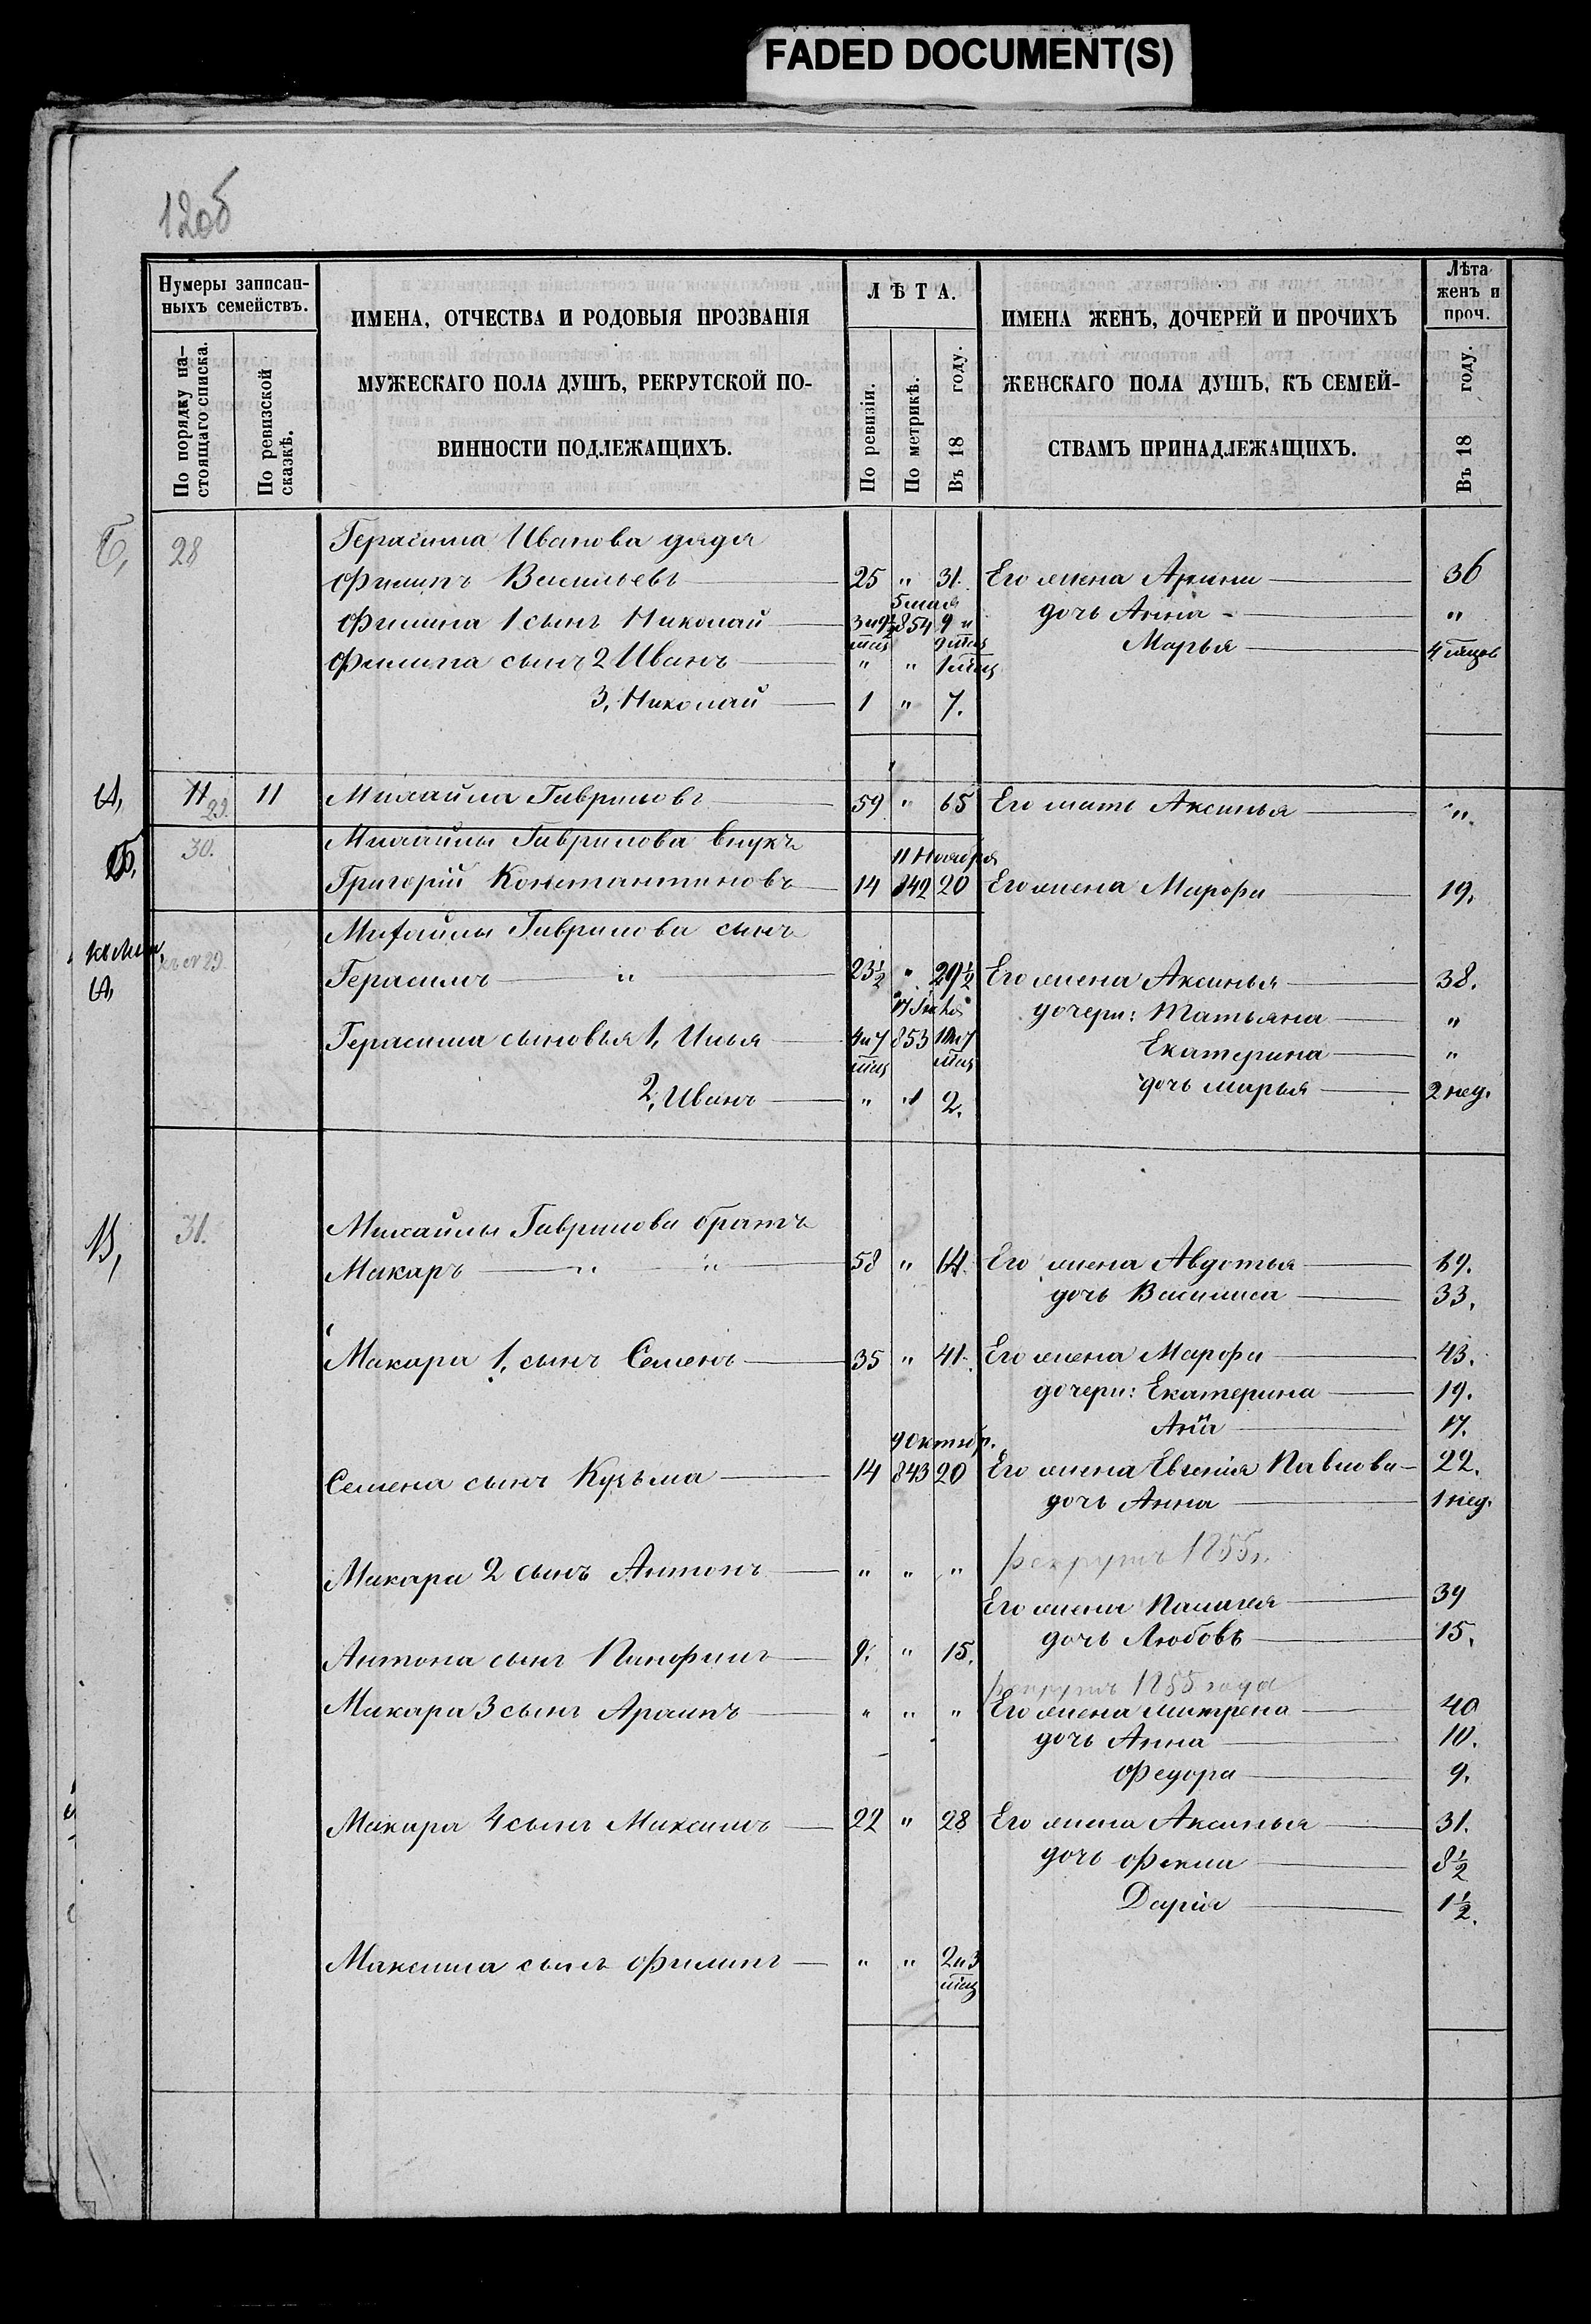 FADED DOCUMENT(S)
120б
Нумеры записан-
ныхъ семействъ.
По порядку на-
стоящаго списка.
По ревизской
сказкѣ.
ИМЕНА, ОТЧЕСТВА И РОДОВЫЯ ПРОЗВАНІЯ
МУЖЕСКАГО ПОЛА ДУШЪ, РЕКРУТСКОЙ ПО-
ВИННОСТИ ПОДЛЕЖАЩИХЪ.
ЛѢТА.
По ревизіи.
По метрикѣ.
Въ 18 году.
ИМЕНА ЖЕНЪ, ДОЧЕРЕЙ И ПРОЧИХЪ
ЖЕНСКАГО ПОЛА ДУШЪ, КЪ СЕМЕЙ-
СТВАМЪ ПРИНАДЛЕЖАЩИХЪ.
Лѣта
женъ и
проч.
Въ 18 году.
Б, 28 Герасима Иванова дядя
Филипъ Васильевъ 25 " 31. Его жена Арина 36
5 мая
Филипа 1 сынъ Николай 3 и 9½ мѣс 854 9 и 9 мѣс дочь Анна "
Марья 4 мѣцов
Филипа сынъ 2 Иванъ " " 1 мѣц
3, Николай 1 " 7.
А, 11 29. 11 Михайла Гавриловъ 59 " 65 Его мать Аксинья "
Б, 30. Михайлы Гаврилова внукъ
11 Ноября
Григорій Константиновъ 14 842 20 Его жена Марфа 19.
Михайлы Гаврилова сынъ
къ № 29
А,
Герасимъ " 23½ " 29½ Его жена Аксинья 38.
дочери: Татьяна "
Герасима сыновья 1, Илья 4 и 7 мѣц 853 10 и 7 мѣц
Екатерина "
дочь Марья 2 нед.
2, Иванъ " " 2.
В, 31. Михайлы Гаврилова братъ
Макаръ " " 58 " 64. Его жена Авдотья 69.
дочь Василиса 33.
Макара 1, сынъ Семенъ 35 " 41. Его жена Марфа 43.
дочери: Екатерина 19.
Анна 17.
9 Октябр.
Семена сынъ Кузьма 14 843 20 Его жена Евгенія Павлова 22.
дочь Анна 1 нед.
рекрутъ 1855 г.
Макара 2 сынъ Антонъ " " "
Его жена Палагея 39
дочь Любовь 15.
Антона сынъ Панфилъ 9. " 15.
рекрутъ 1855 года
Макара 3 сынъ Архипъ " " " Его жена Матрена 40
дочь Анна 10.
Федора 9.
Макара 4 сынъ Максимъ 22 " 28 Его жена Аксинья 31.
дочь Фекла 8½
Дарія 1½.
Максима сынъ Филипъ " " 2 и 3 мѣц